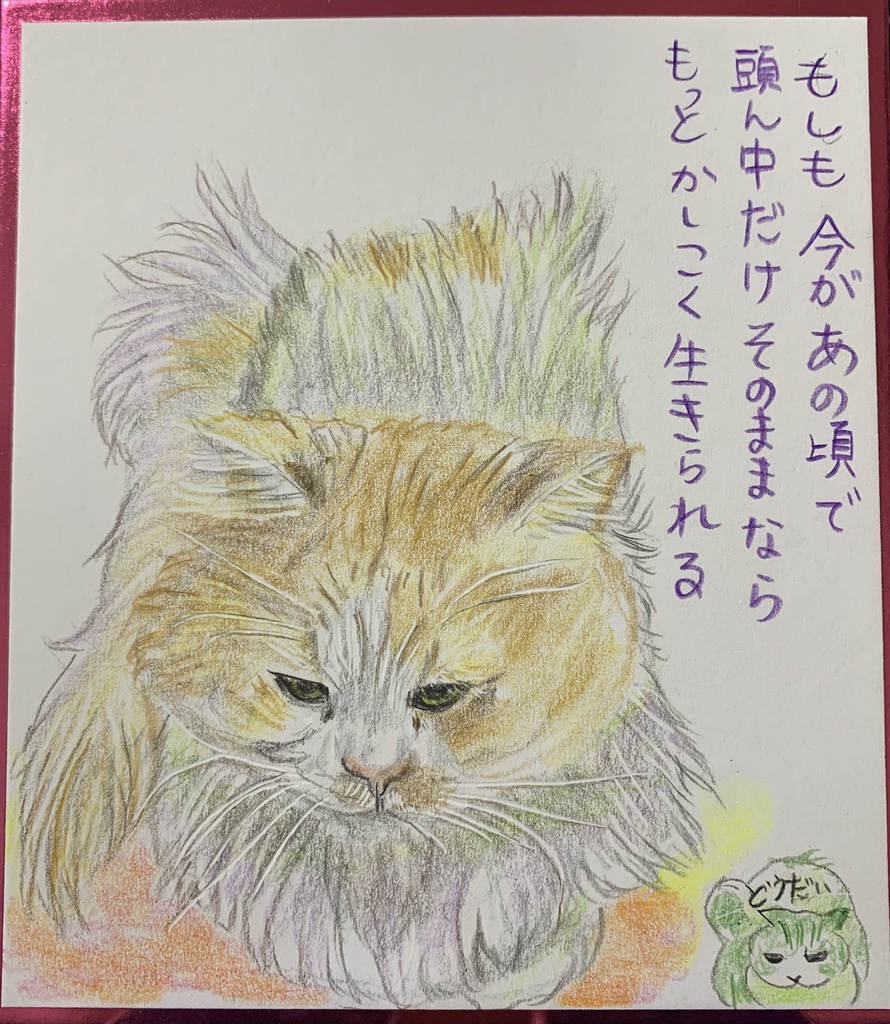 もしも今があの頃で
頭ん中だけそのままなら
もっとかしこく生きられる
どうだい